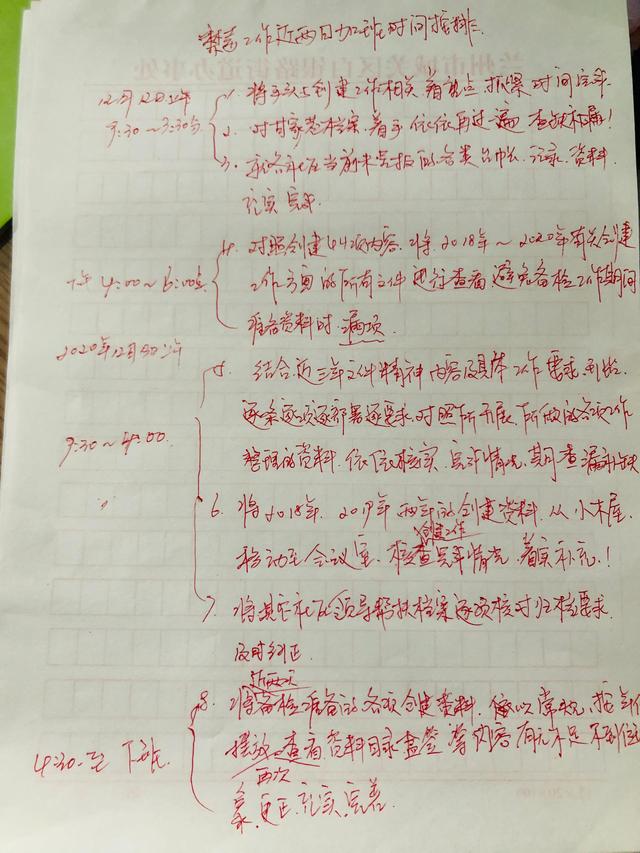 工作近两日加班时间按排:
12月12日上午
9:30~3:30分
1. 将手头上创建工作相关着重点 抓紧时间完毕.
2. 对甘家巷档案,着手依依再过一遍 查缺补漏!
3. 社区当前未完报的各类台帐、记录、资料
充实完毕.
下午 4:00~6:00点
4. 对照创建44项内容、将2018年~2020年有关创建
工作方面的所有文件进行查看 避免备检工作期间
准备资料时漏项.
2020年12月 日 上午
9:30~4:00.
5. 结合近三年文件精神 内容及具体工作要求
逐条逐项逐部署逐要求、对照所开展、所做的各项工作
整理的资料、依依核实、完毕情况,其间查漏补缺
6. 将2018年、2019年两年的创建资料、从小木屋、
移动至会议室、核查创建工作完毕情况、着实补充!
7. 将其它社区领导帮扶档案逐项核对归档要求
及时纠正.
4:30至下班.
8. 将近两天备检准备的各项创建资料、按年份
摆放、查看、资料目录盒签等内容有无不足不到位
再次更正、充实、完善.